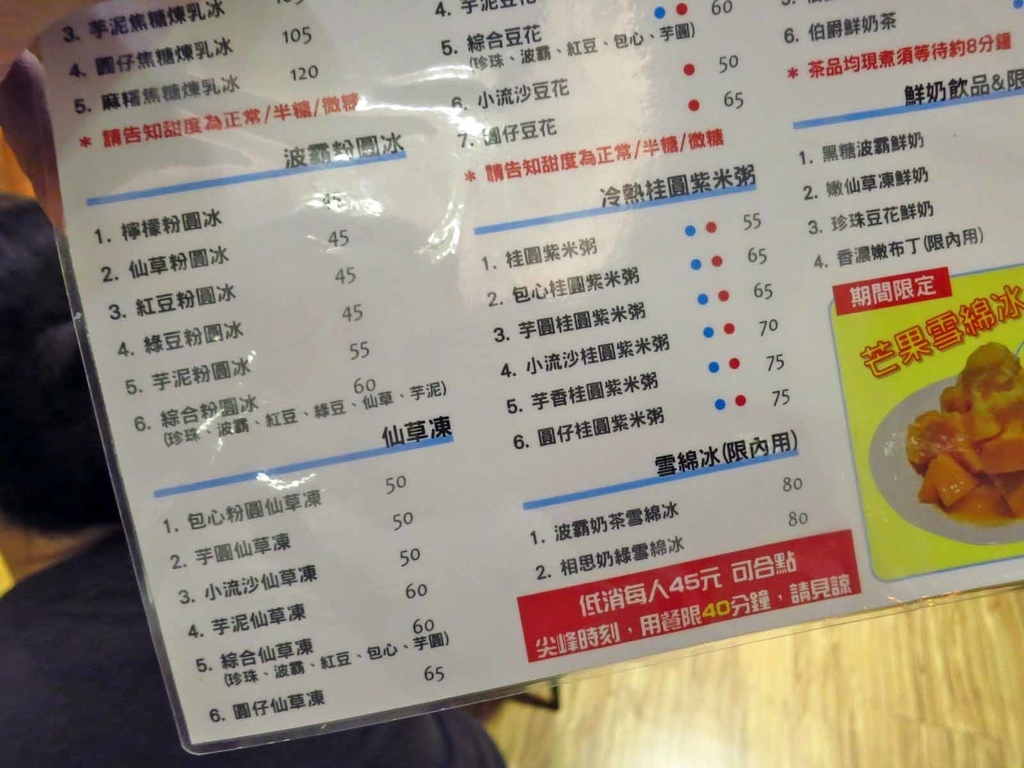 3. 芋泥焦糖煉乳冰
4. 圓仔焦糖煉乳冰 105
5. 麻糬焦糖煉乳冰 120
* 請告知甜度為正常/半糖/微糖
波霸粉圓冰
1. 檸檬粉圓冰 45
2. 仙草粉圓冰 45
3. 紅豆粉圓冰 45
4. 綠豆粉圓冰 45
5. 芋泥粉圓冰 55
6. 綜合粉圓冰 60
(珍珠、波霸、紅豆、綠豆、仙草、芋泥)
仙草凍
1. 包心粉圓仙草凍 50
2. 芋圓仙草凍 50
3. 小流沙仙草凍 50
4. 芋泥仙草凍 60
5. 綜合仙草凍 60
(珍珠、波霸、紅豆、包心、芋圓)
6. 圓仔仙草凍 65
4. 芋泥豆花
5. 綜合豆花 60
(珍珠、波霸、紅豆、包心、芋圓)
6. 小流沙豆花 50
7. 圓仔豆花 65
* 請告知甜度為正常/半糖/微糖
冷熱桂圓紫米粥
1. 桂圓紫米粥 55
2. 包心桂圓紫米粥 65
3. 芋圓桂圓紫米粥 65
4. 小流沙桂圓紫米粥 70
5. 芋香桂圓紫米粥 75
6. 圓仔桂圓紫米粥 75
雪綿冰(限內用)
1. 波霸奶茶雪綿冰 80
2. 相思奶綠雪綿冰 80
低消每人45元 可合點
尖峰時刻，用餐限40分鐘，請見諒
6. 伯爵鮮奶茶
* 茶品均現煮須等待約8分鐘
鮮奶飲品&限
1. 黑糖波霸鮮奶
2. 嫩仙草凍鮮奶
3. 珍珠豆花鮮奶
4. 香濃嫩布丁(限內用)
期間限定
芒果雪綿冰